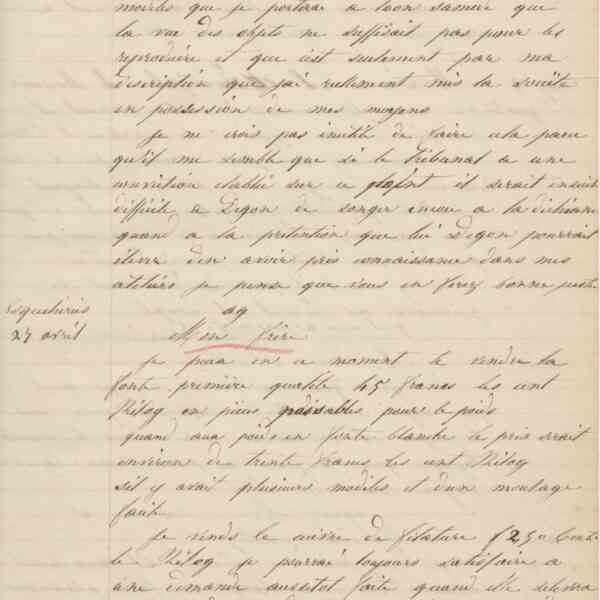 modèles que je porterai a loon samedi que
la vue des objets ne suffisait pas pour les
reproduire et que c'est seulement par ma
description que j'ai réellement mis la société
en possession de mes moyens
Je ne crois pas inutile de faire cela parce
qu'il me semble que si le Tribunal a une
conviction établie sur ce point il serait ensuite
difficile a Degon de songer encore a la déchéance
quand a la prétention que lui Degon pourrait
élever d'en avoir pris connaissance dans mes
ateliers je pense que vous en ferez bonne justice
ag
Esquehéries
27 avril
Mon frère
Je puis en ce moment te vendre la
fonte première qualité 45 francs les cent
Kilog en pièces paisables pour le poids
quand aux poids en fonte blanche le prix serait
environ de trente francs les cent Kilog
s'il y avait plusieurs modèles et d'un moulage
facile
Je vends le cuivre de filature f 2,50
le Kilog je pourrai toujours satisfaire a
une demande aussitot faite quand elle